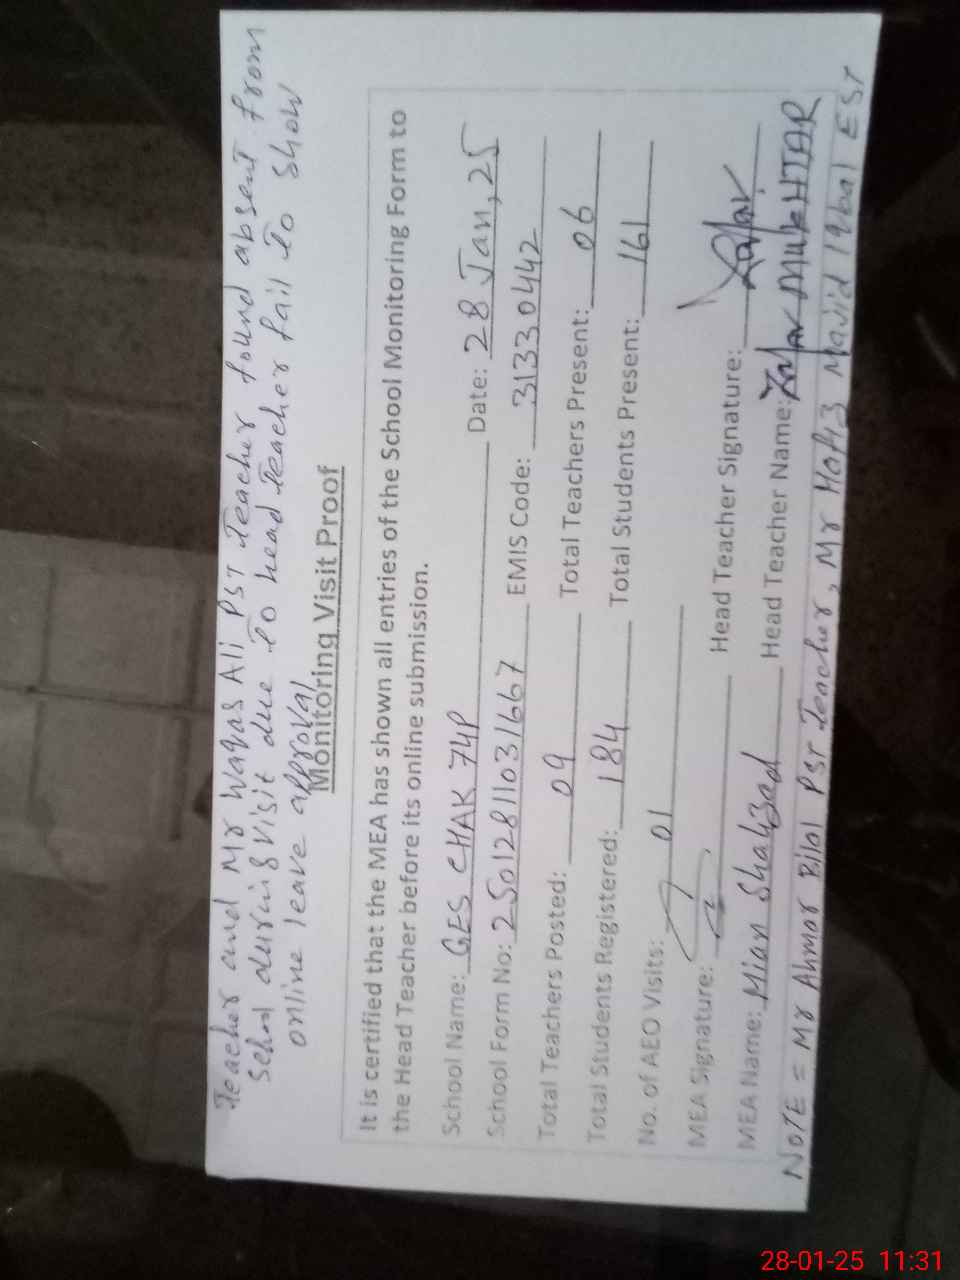 Teacher and Mr Waqas Ali PST Teacher found absent from
School during visit due to head Teacher fail to show
online leave approval
Monitoring Visit Proof
It is certified that the MEA has shown all entries of the School Monitoring Form to
the Head Teacher before its online submission.
School Name: GES CHAK 74P Date: 28 Jan, 25
School Form No: 25012811031667 EMIS Code: 31330442
Total Teachers Posted: 09 Total Teachers Present: 06
Total Students Registered: 184 Total Students Present: 161
No. of AEO Visits: 01
MEA Signature: Head Teacher Signature: Zafar
MEA Name: Mian Shahzad Head Teacher Name: Zafar MUKHTAR
NOTE = Mr Ahmar Bilal PST Teacher, Mr Hafiz Majid Iqbal EST
28-01-25 11:31